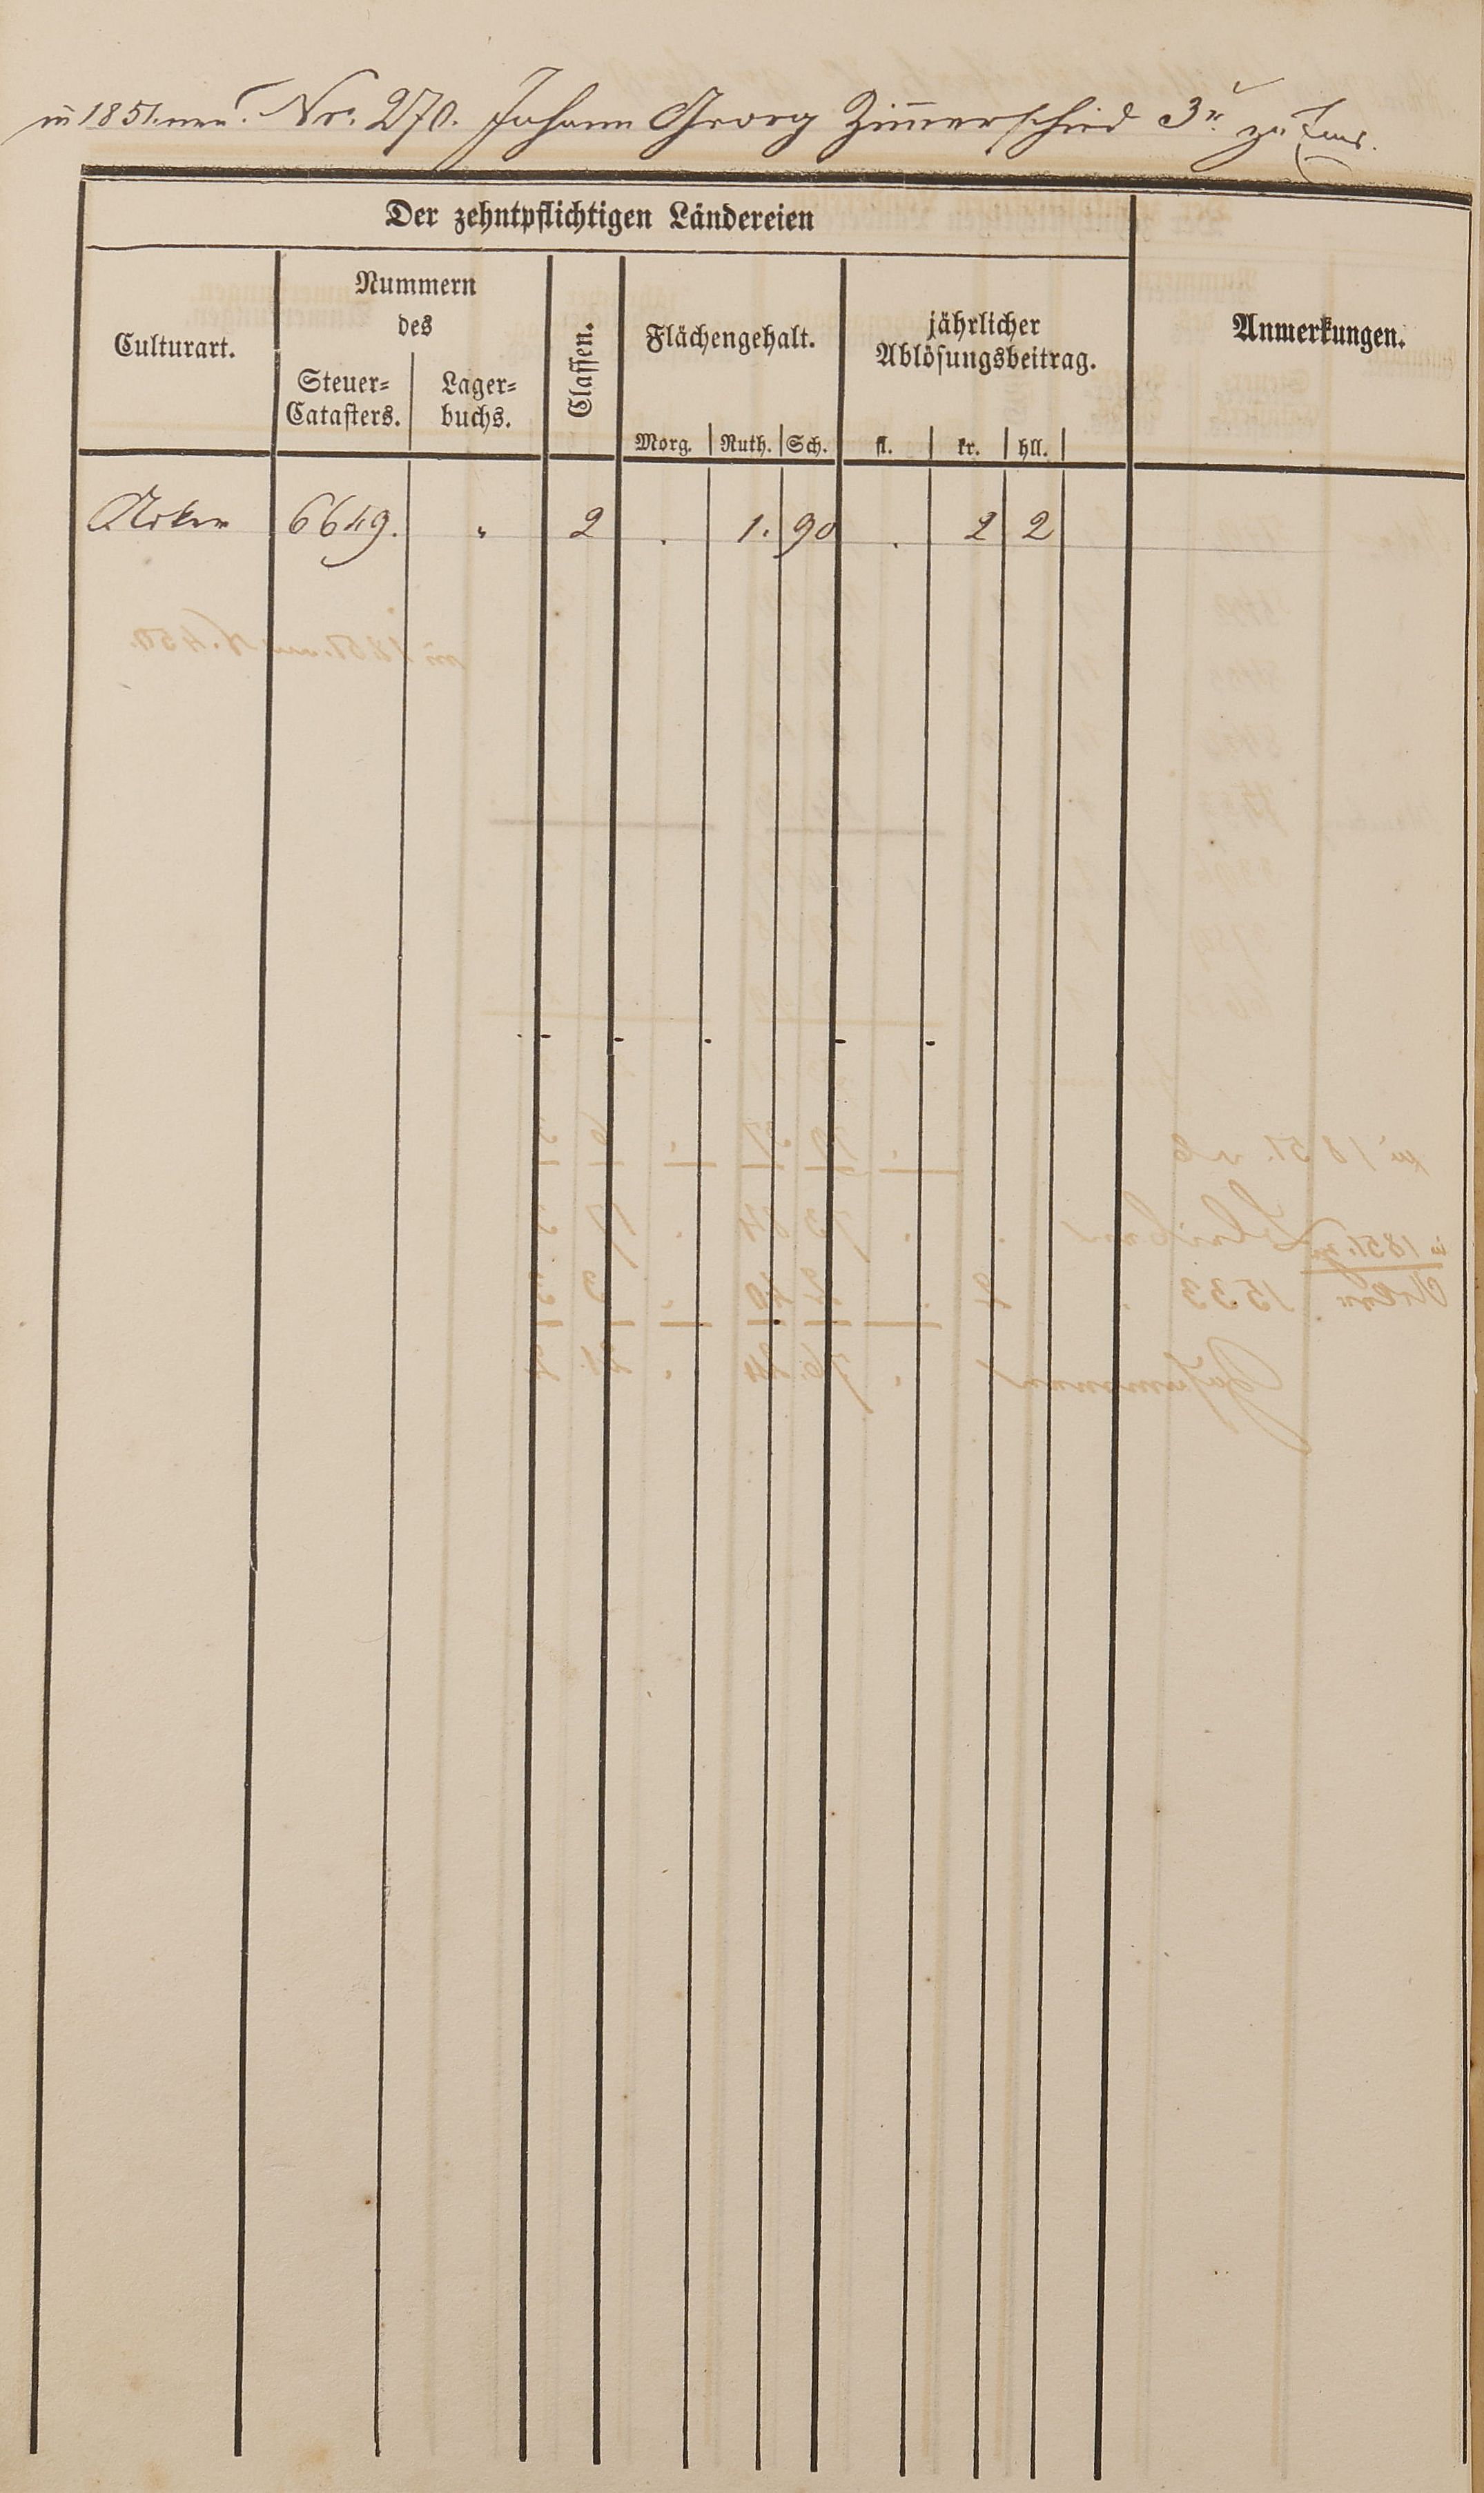 in 1851. neu. Nr. 270. Johann Georg Zimmerschied 3r. zu Ems.
Der zehntpflichtigen Ländereien
Culturart.
Nummern
des
Steuer-
Catasters.
Lager-
buchs.
Classen.
Flächengehalt.
Morg. Ruth. Sch.
jährlicher
Ablösungsbeitrag.
fl. kr. hll.
Anmerkungen.
Acker 6649. " 2 . 1. 90 . 2 2